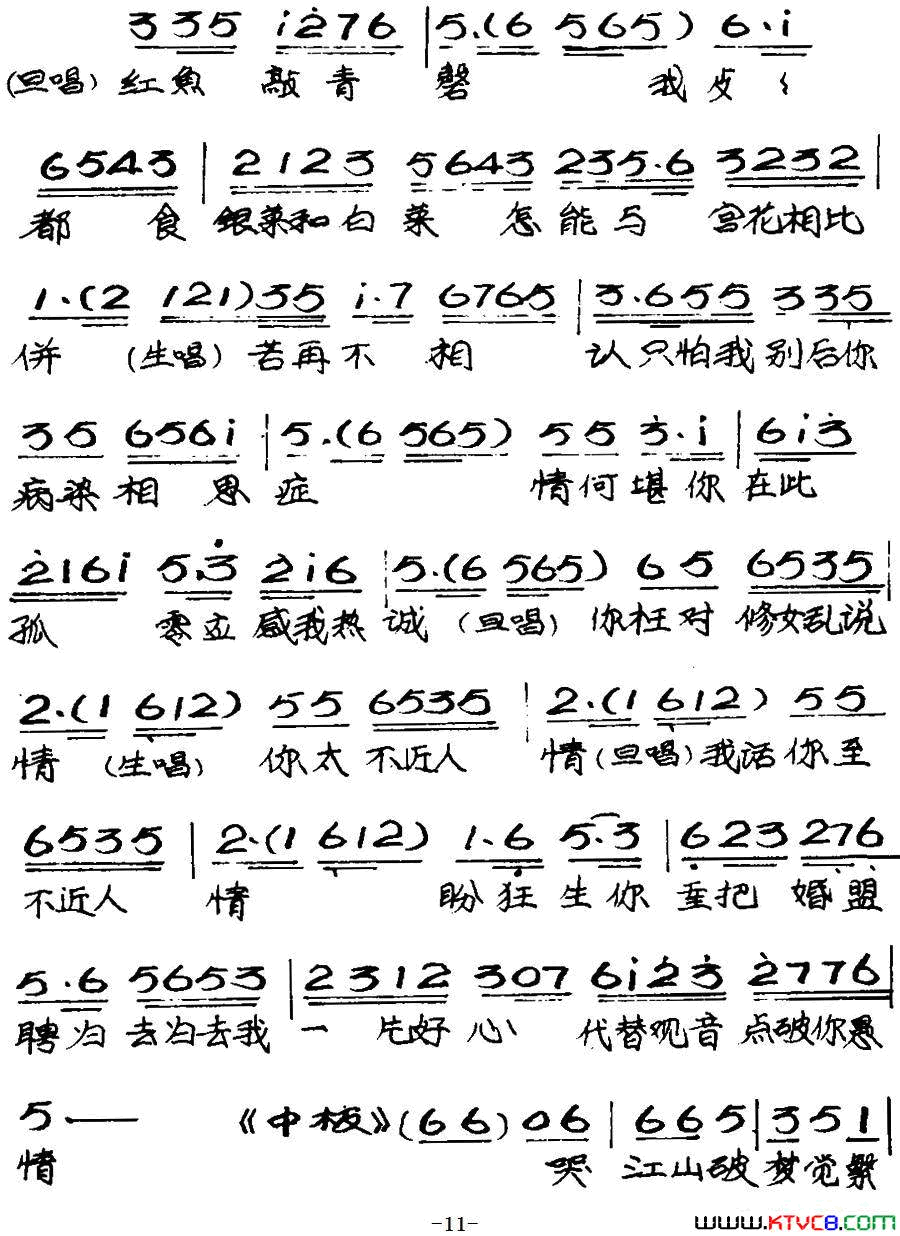 3 3 5 i 2 7 6 | 5.(6 5 6 5) 6.i
(旦唱) 红魚 敲青 磬 我 皮〻
6 5 4 3 | 2 1 2 3 5 6 4 3 2 3 5.6 3 2 3 2 |
都 食 銀菜和白菜 怎能与 宮花相比
1.(2 1 2 1) 3 5 i.7 6 7 6 5 | 3.6 5 5 3 3 5
併 (生唱) 若再不 相 认只怕我别后你
3 5 6 5 6 i | 5.(6 5 6 5) 5 5 3.i | 6 i 3
病染相 思 症 情何堪你在此
2 1 6 i 5.3 2 i 6 | 5.(6 5 6 5) 6 5 6 5 3 5 |
孤 零立 感我热 诚 (旦唱) 你枉对 修女乱说
2.(1 6 1 2) 5 5 6 5 3 5 | 2.(1 6 1 2) 5 5
情 (生唱) 你太 不近人 情 (旦唱) 我话你至
6 5 3 5 | 2.(1 6 1 2) 1.6 5.3 | 6 2 3 2 7 6
不近人 情 盼狂生你 重把 婚盟
5.6 5 6 5 3 | 2 3 1 2 3 0 7 6 i 2 3 2 7 7 6 |
聘归 去归去我 一 片好 心 代替观音 点破你愚
5 —— 《中板》(6 6) 0 6 | 6 6 5 | 3 5 1 |
情 哭 江山破 梦觉繁
-11-
www.KTVC8.COM